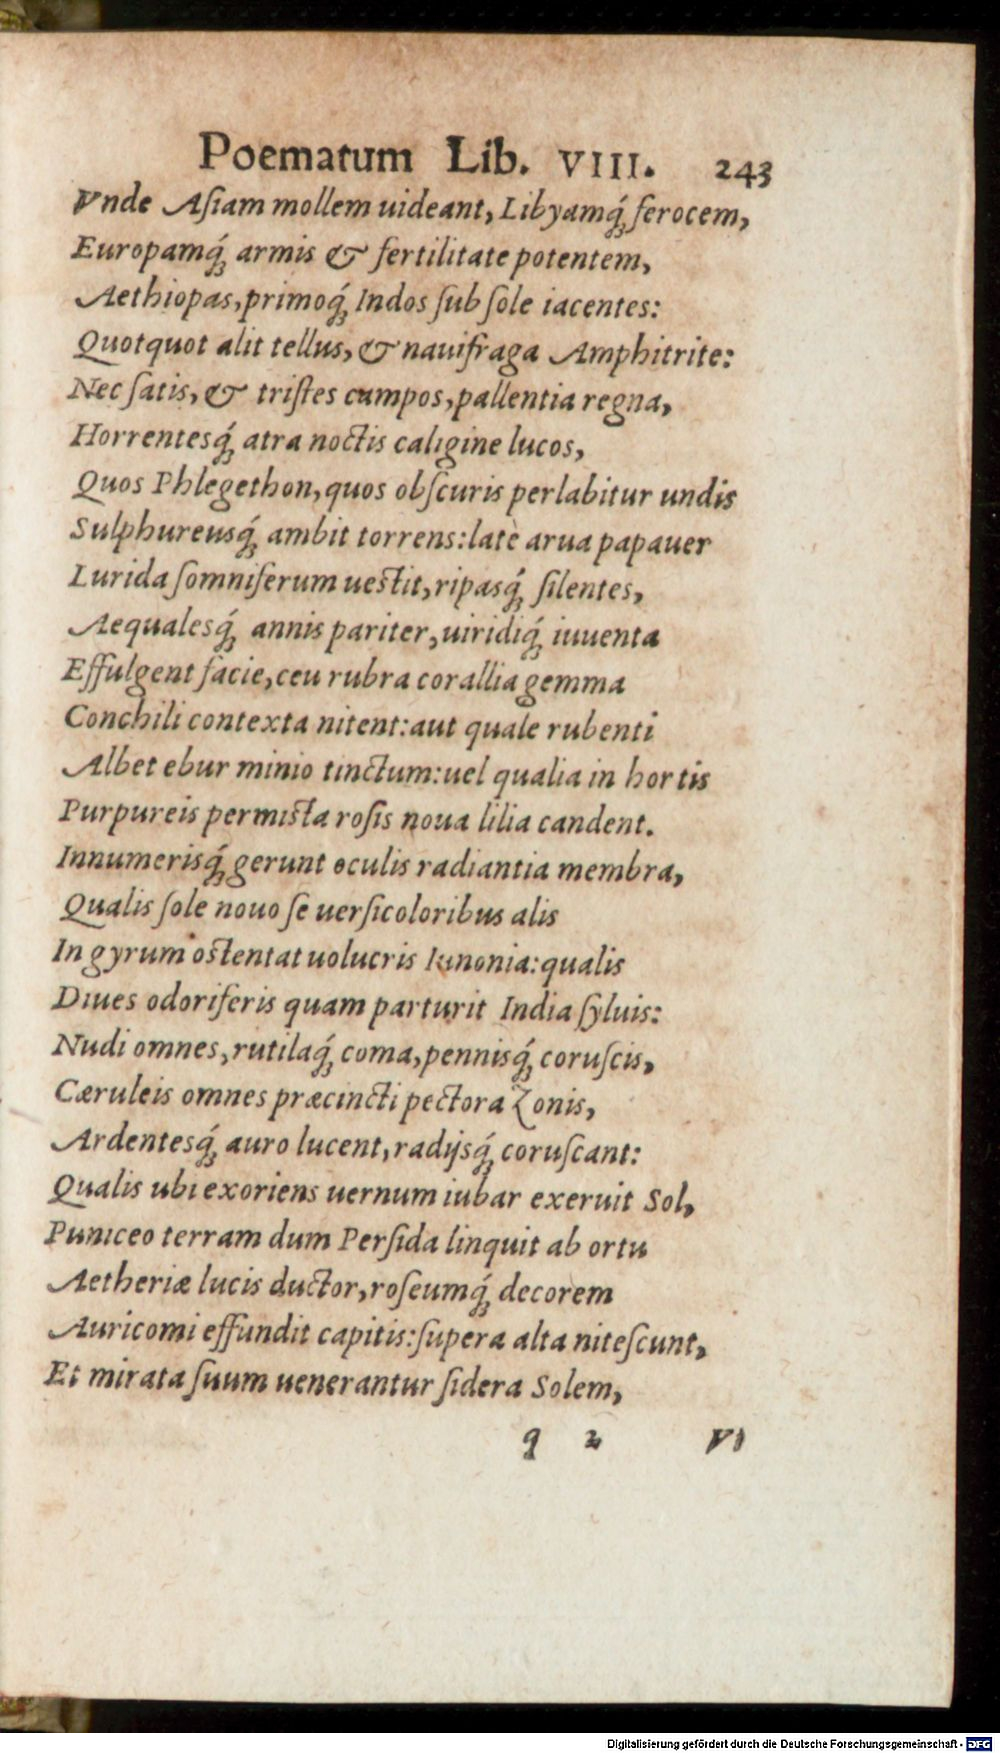 Poematum Lib. VIII. 243
Vnde Aſiam mollem uideant, Libyamq́; ferocem,
Europamq́; armis & fertilitate potentem,
Aethiopas, primoq́; Indos ſub ſole iacentes:
Quotquot alit tellus, & nauifraga Amphitrite:
Nec ſatis, & triſtes campos, pallentia regna,
Horrentesq́; atra noctis caligine lucos,
Quos Phlegethon, quos obſcuris perlabitur undis
Sulphureusq́; ambit torrens: latè arua papauer
Lurida ſomniferum ueſtit, ripasq́; ſilentes,
Aequalesq́; annis pariter, uiridiq́; iuuenta
Effulgent facie, ceu rubra corallia gemma
Conchili contexta nitent: aut quale rubenti
Albet ebur minio tinctum: uel qualia in hortis
Purpureis permiſta roſis noua lilia candent.
Innumerisq́; gerunt oculis radiantia membra,
Qualis ſole nouo ſe uerſicoloribus alis
In gyrum oſtentat uolucris Iunonia: qualis
Diues odoriferis quam parturit India ſyluis:
Nudi omnes, rutilaq́; coma, pennisq́; coruſcis,
Cæruleis omnes præcincti pectora Zonis,
Ardentesq́; auro lucent, radijsq́; coruſcant:
Qualis ubi exoriens uernum iubar exeruit Sol,
Puniceo terram dum Perſida linquit ab ortu
Aetheriæ lucis ductor, roſeumq́; decorem
Auricomi effundit capitis: ſupera alta niteſcunt,
Et mirata ſuum uenerantur ſidera Solem,
q 2 VI
Digitalisierung gefördert durch die Deutsche Forschungsgemeinschaft - DFG